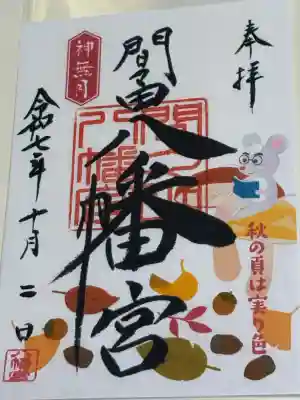 奉拝
秋の頁は実り色
間々田八幡宮
神無月
令和七年十月二日